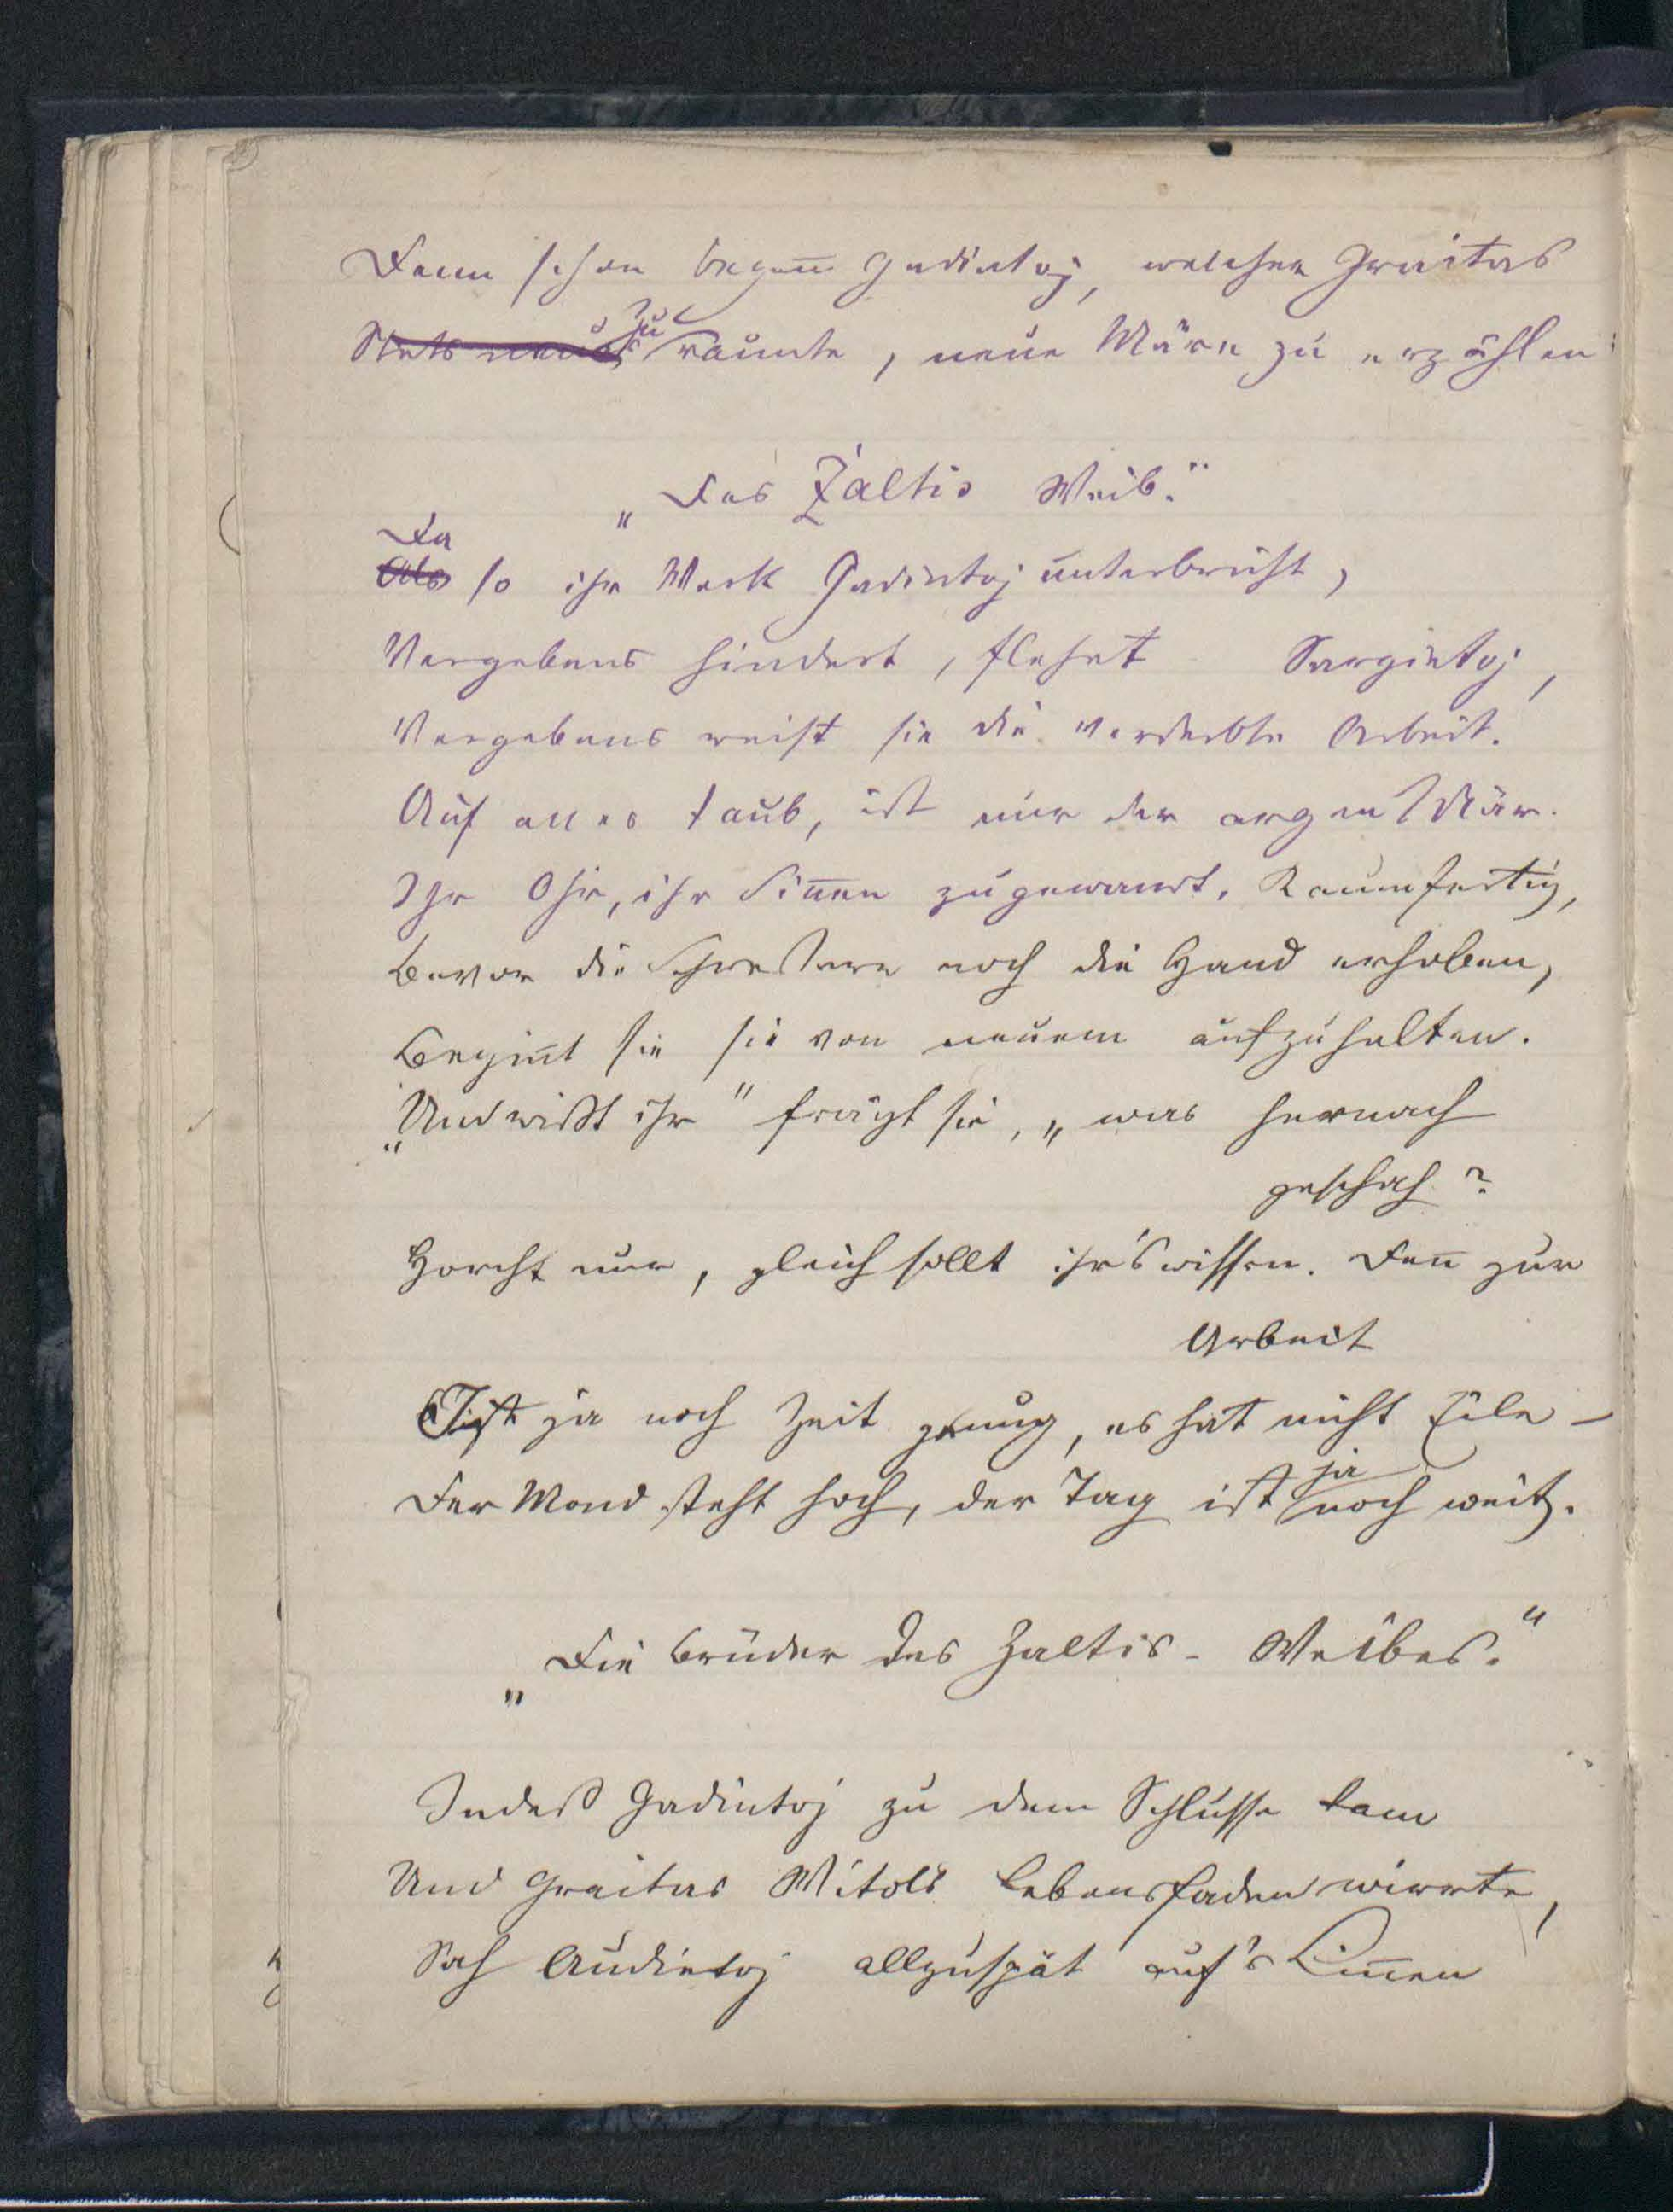 Denn schon began̄ Gadintoj, welcher Graitas
~~Stets neues~~ zu raunte, neue Märe zu erzählen:
„Das Żaltis Weib.“
Da
~~Als~~ so ihr Werk Gadintoj unterbricht,
Vergebens hindert, flehet Sargietoj,
Vergebens weist sie die verderbte Arbeit.
Auf alles taub, ist nur der argen Mär
Ihr Ohr, ihr Sin̄en zugewandt. Kaum fertig,
Bevor die Schwestern noch die Hand erhoben,
Begin̄t sie sie von neuem aufzuhalten.
„Und wißt ihr“ frägt sie, „was hernach
geschah?
Horcht nur, gleich sollt ihr's wissen. Den̄ zur
Arbeit
Ist ja noch Zeit genug, es hat nicht Eile –
Der Mond steht hoch, der Tag ist ja noch weit.
„Die Brüder des Zaltis-Weibes.“
Indeß Gadintoj zu dem Schlusse kam
Und Graitas Witols Lebensfaden wirrte,
Sah Audietoj allzuspät auf's Lin̄en